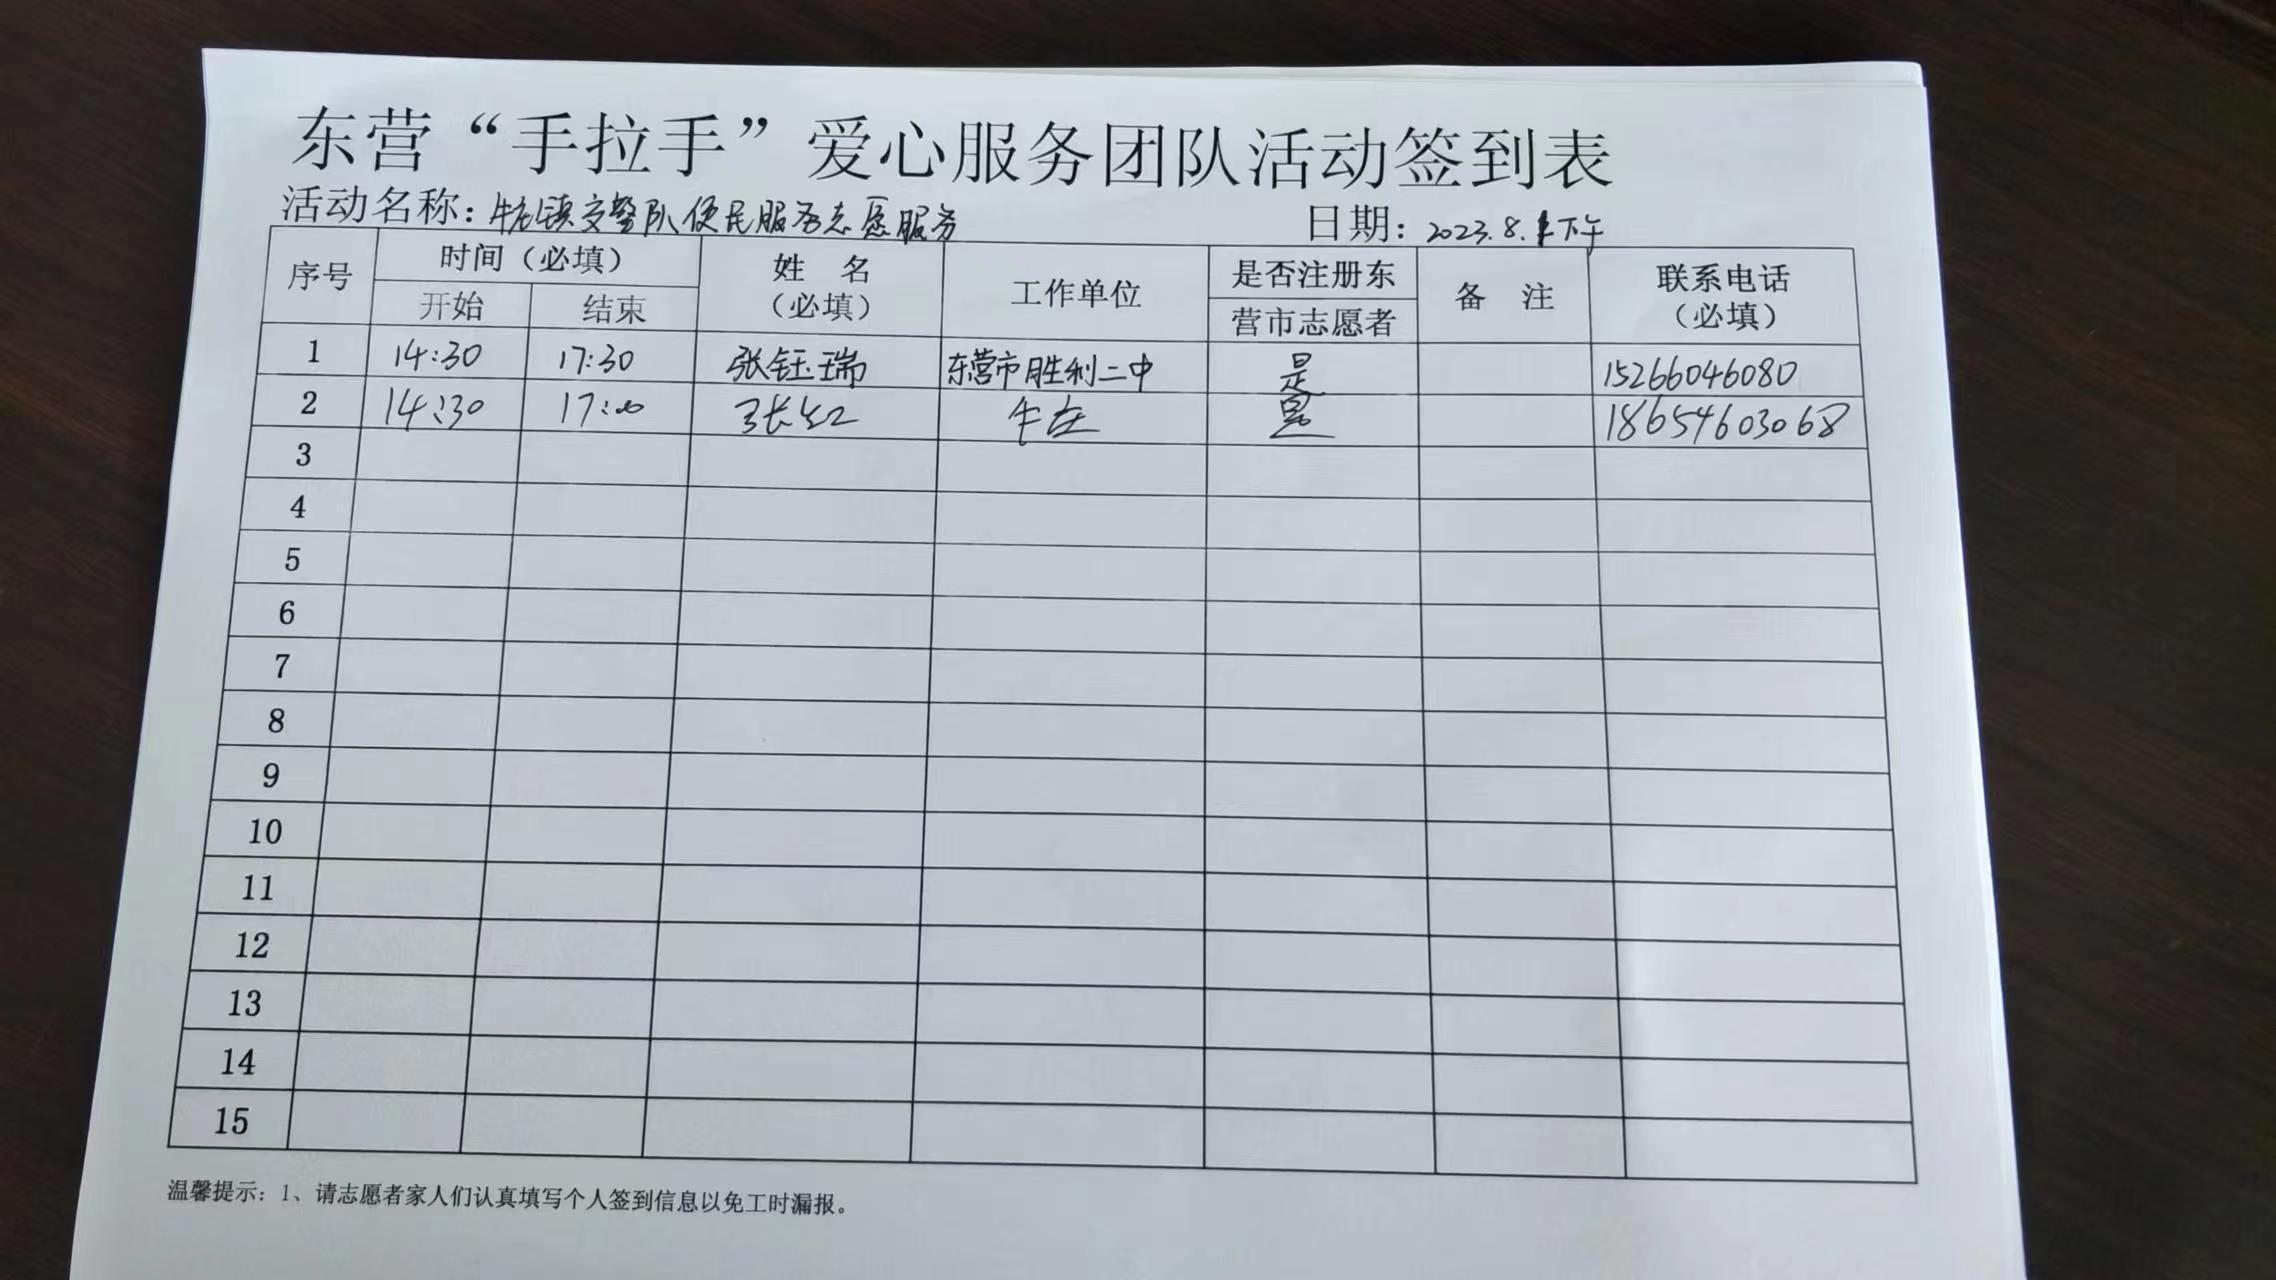 东营“手拉手”爱心服务团队活动签到表
活动名称：牛庄镇交警队便民服务志愿服务 日期：2023.8.1下午
序号 时间（必填） 姓 名（必填） 工作单位 是否注册东营市志愿者 备 注 联系电话（必填）
开始 结束
1 14:30 17:30 张钰瑞 东营市胜利二中 是 15266046080
2 14:30 17:00 张红 牛庄 是 18654603068
3
4
5
6
7
8
9
10
11
12
13
14
15
温馨提示：1、请志愿者家人们认真填写个人签到信息以免工时漏报。